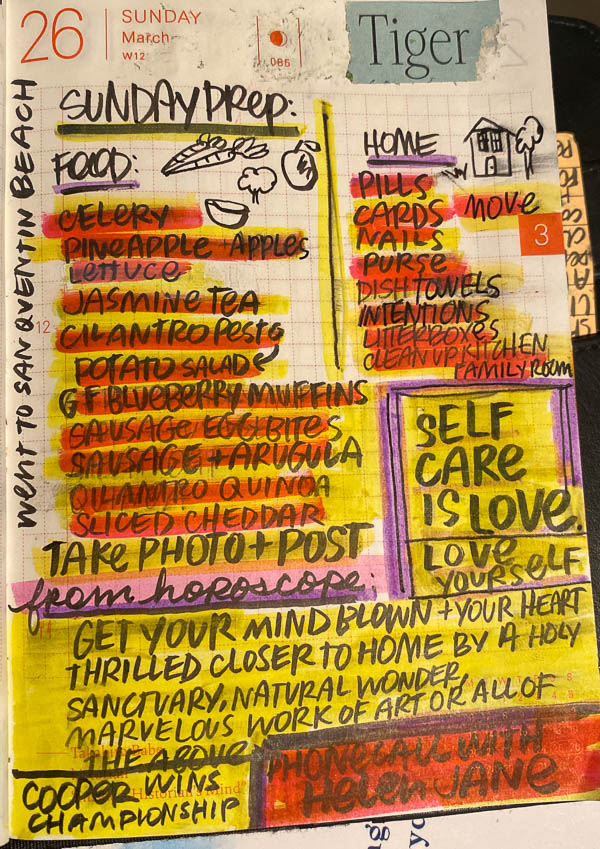 26
SUNDAY
March
W12
085
Tiger
WENT TO SAN QUENTIN BEACH
SUNDAY PREP:
FOOD:
CELERY
PINEAPPLE + APPLES
LETTUCE
JASMINE TEA
CILANTRO PESTO
POTATO SALAD
GF BLUEBERRY MUFFINS
SAUSAGE EGG BITES
SAUSAGE + ARUGULA
QILIANTRO QUINOA
SLICED CHEDDAR
TAKE PHOTO + POST
HOME
PILLS
CARDS MOVE
NAILS
PURSE
DISH TOWELS
INTENTIONS
LITTERBOXES
CLEAN UP KITCHEN
FAMILY ROOM
3
12
SELF
CARE
IS LOVE.
LOVE
YOURSELF
from horoscope:
GET YOUR MIND BLOWN + YOUR HEART
THRILLED CLOSER TO HOME BY A HOLY
SANCTUARY, NATURAL WONDER,
MARVELOUS WORK OF ART OR ALL OF
THE ABOVE
COOPER WINS
CHAMPIONSHIP
PHONE CALL WITH
HELEN JANE